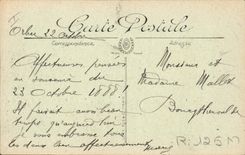 Erbu 22 octobre
Carte Postale
Correspondance
Adresse
Affectueuses pensées
en souvenir du
23 Octobre 1888!
Il faisait aussi beau
temps qu'aujourd'hui
je vous embrasse tous
les deux bien affectueusement
Monsieur et
Madame Mallet
Bourgtheroulde
R. J26M